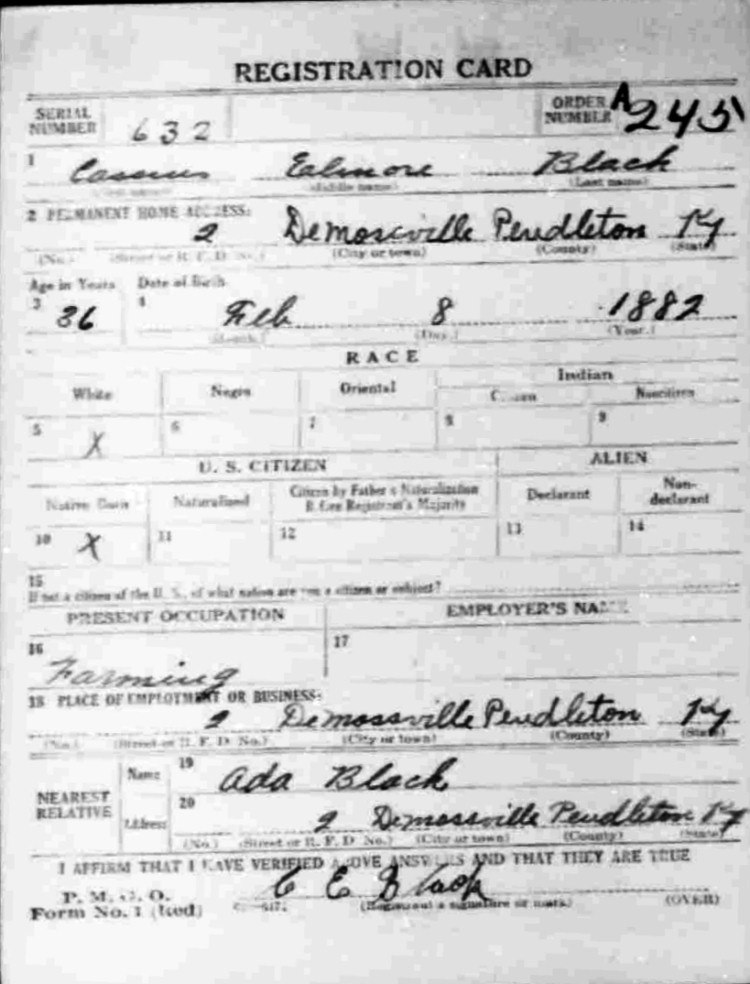 REGISTRATION CARD
SERIAL NUMBER 632 ORDER NUMBER A 245
1 Cassius Ealmore Black
(Middle name) (Last name)
2 PERMANENT HOME ADDRESS:
2 Demoscville Pendleton Ky
(No.) (Street or R. F. D. No.) (City or town) (County) (State)
Age in Years Date of Birth
3 36 4 Feb 8 1882
(Month) (Day.) (Year.)
RACE
White Negro Oriental Indian
Citizen Noncitizen
5 X 6 7 8 9
U. S. CITIZEN ALIEN
Native Born Naturalized Citizen by Father's Naturalization Before Registrant's Majority Declarant Non-declarant
10 X 11 12 13 14
15
If not a citizen of the U. S., of what nation are you a citizen or subject?
PRESENT OCCUPATION EMPLOYER'S NAME
16 Farming 17
18 PLACE OF EMPLOYMENT OR BUSINESS:
2 Demossville Pendleton Ky
(No.) (Street or R. F. D. No.) (City or town) (County) (State)
NEAREST RELATIVE Name 19 Ada Black
Address 20 2 Demossville Pendleton Ky
(No.) (Street or R. F. D. No.) (City or town) (County) (State)
I AFFIRM THAT I HAVE VERIFIED ABOVE ANSWERS AND THAT THEY ARE TRUE
P. M. G. O.
Form No. 1 (Red) C E Black
(Registrant's signature or mark) (OVER)